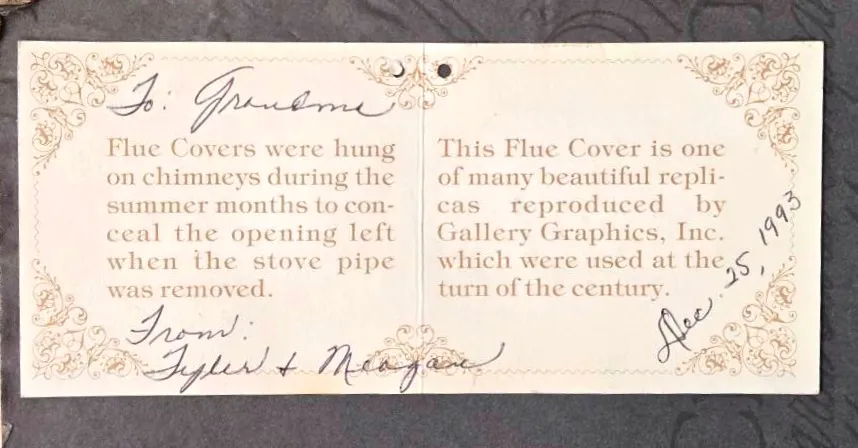 To: Grandma
Flue Covers were hung
on chimneys during the
summer months to con-
ceal the opening left
when the stove pipe
was removed.
From:
Tyler & Meagan
This Flue Cover is one
of many beautiful repli-
cas reproduced by
Gallery Graphics, Inc.
which were used at the
turn of the century.
Dec. 25, 1993